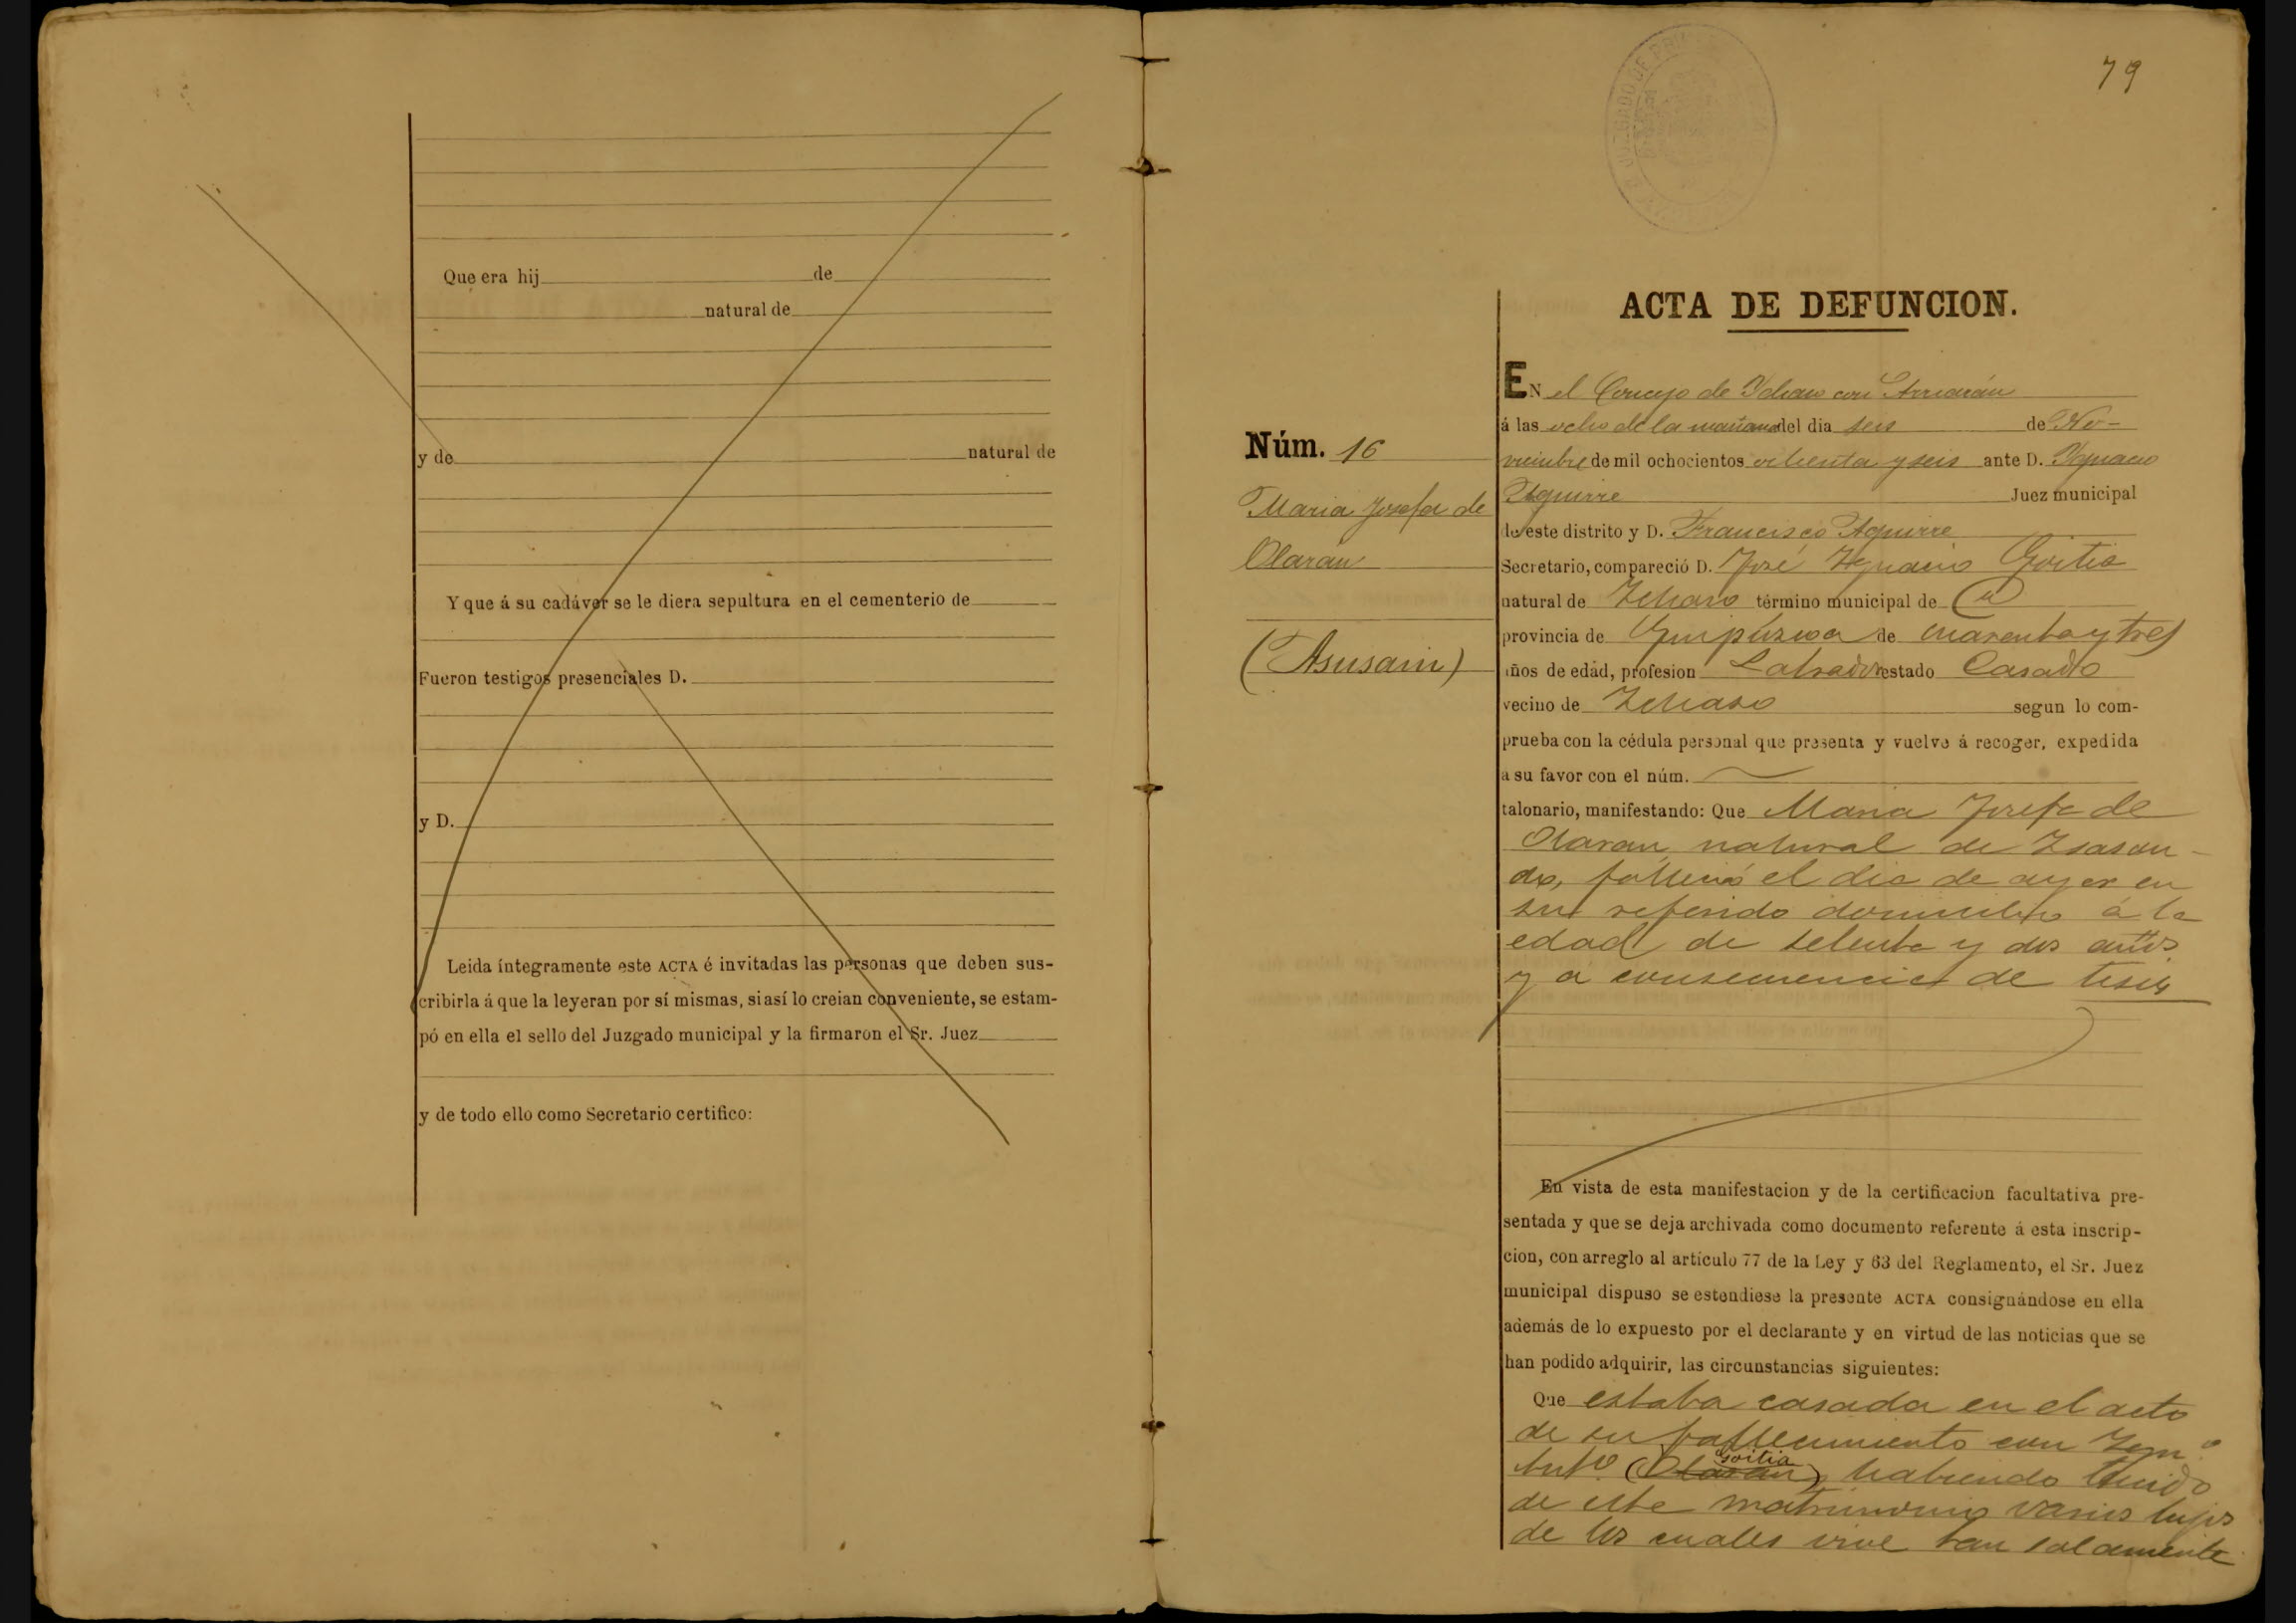 Que era hij de
natural de
y de natural de
Y que á su cadáver se le diera sepultura en el cementerio de
Fueron testigos presenciales D.
y D.
Leida íntegramente este ACTA é invitadas las personas que deben sus-
cribirla á que la leyeran por sí mismas, si así lo creian conveniente, se estam-
pó en ella el sello del Juzgado municipal y la firmaron el Sr. Juez
y de todo ello como Secretario certifico:
79
Núm. 16
Maria Josefa de
Olaran
(Asusain)
ACTA DE DEFUNCION.
EN el Concejo de con Arriarán
á las ocho de la mañana del dia seis de No-
viembre de mil ochocientos ochenta y seis ante D. Ygnacio
Aguirre Juez municipal
de este distrito y D. Francisco Aguirre
Secretario, compareció D. José Ygnacio Goitia
natural de Ichaso término municipal de
provincia de Guipúzcoa de cuarenta y tres
años de edad, profesion Labrador estado Casado
vecino de Ichaso segun lo com-
prueba con la cédula personal que presenta y vuelve á recoger, expedida
a su favor con el núm.
talonario, manifestando: Que Maria Josefa de
Olaran, natural de Isason-
do, falleció el dia de ayer en
su referido domicilio á la
edad de setenta y dos años
y a consecuencia de tisis
En vista de esta manifestacion y de la certificacion facultativa pre-
sentada y que se deja archivada como documento referente á esta inscrip-
cion, con arreglo al artículo 77 de la Ley y 63 del Reglamento, el Sr. Juez
municipal dispuso se estendiese la presente ACTA consignándose en ella
además de lo expuesto por el declarante y en virtud de las noticias que se
han podido adquirir, las circunstancias siguientes:
Que estaba casada en el acto
de su fallecimiento con Ygn.º
Ant.º (Olaran) Goitia habiendo tenido
de este matrimonio varios hijos
de los cuales vive tan solamente